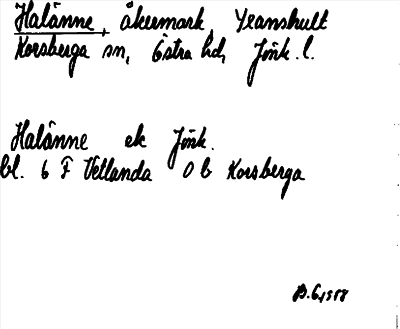 Halänne, åkermark, Yranshult
Korsberga sn, Östra hd, Jönk. l.
Halänne ek Jönk.
bl. 6 F Vetlanda 0 b Korsberga